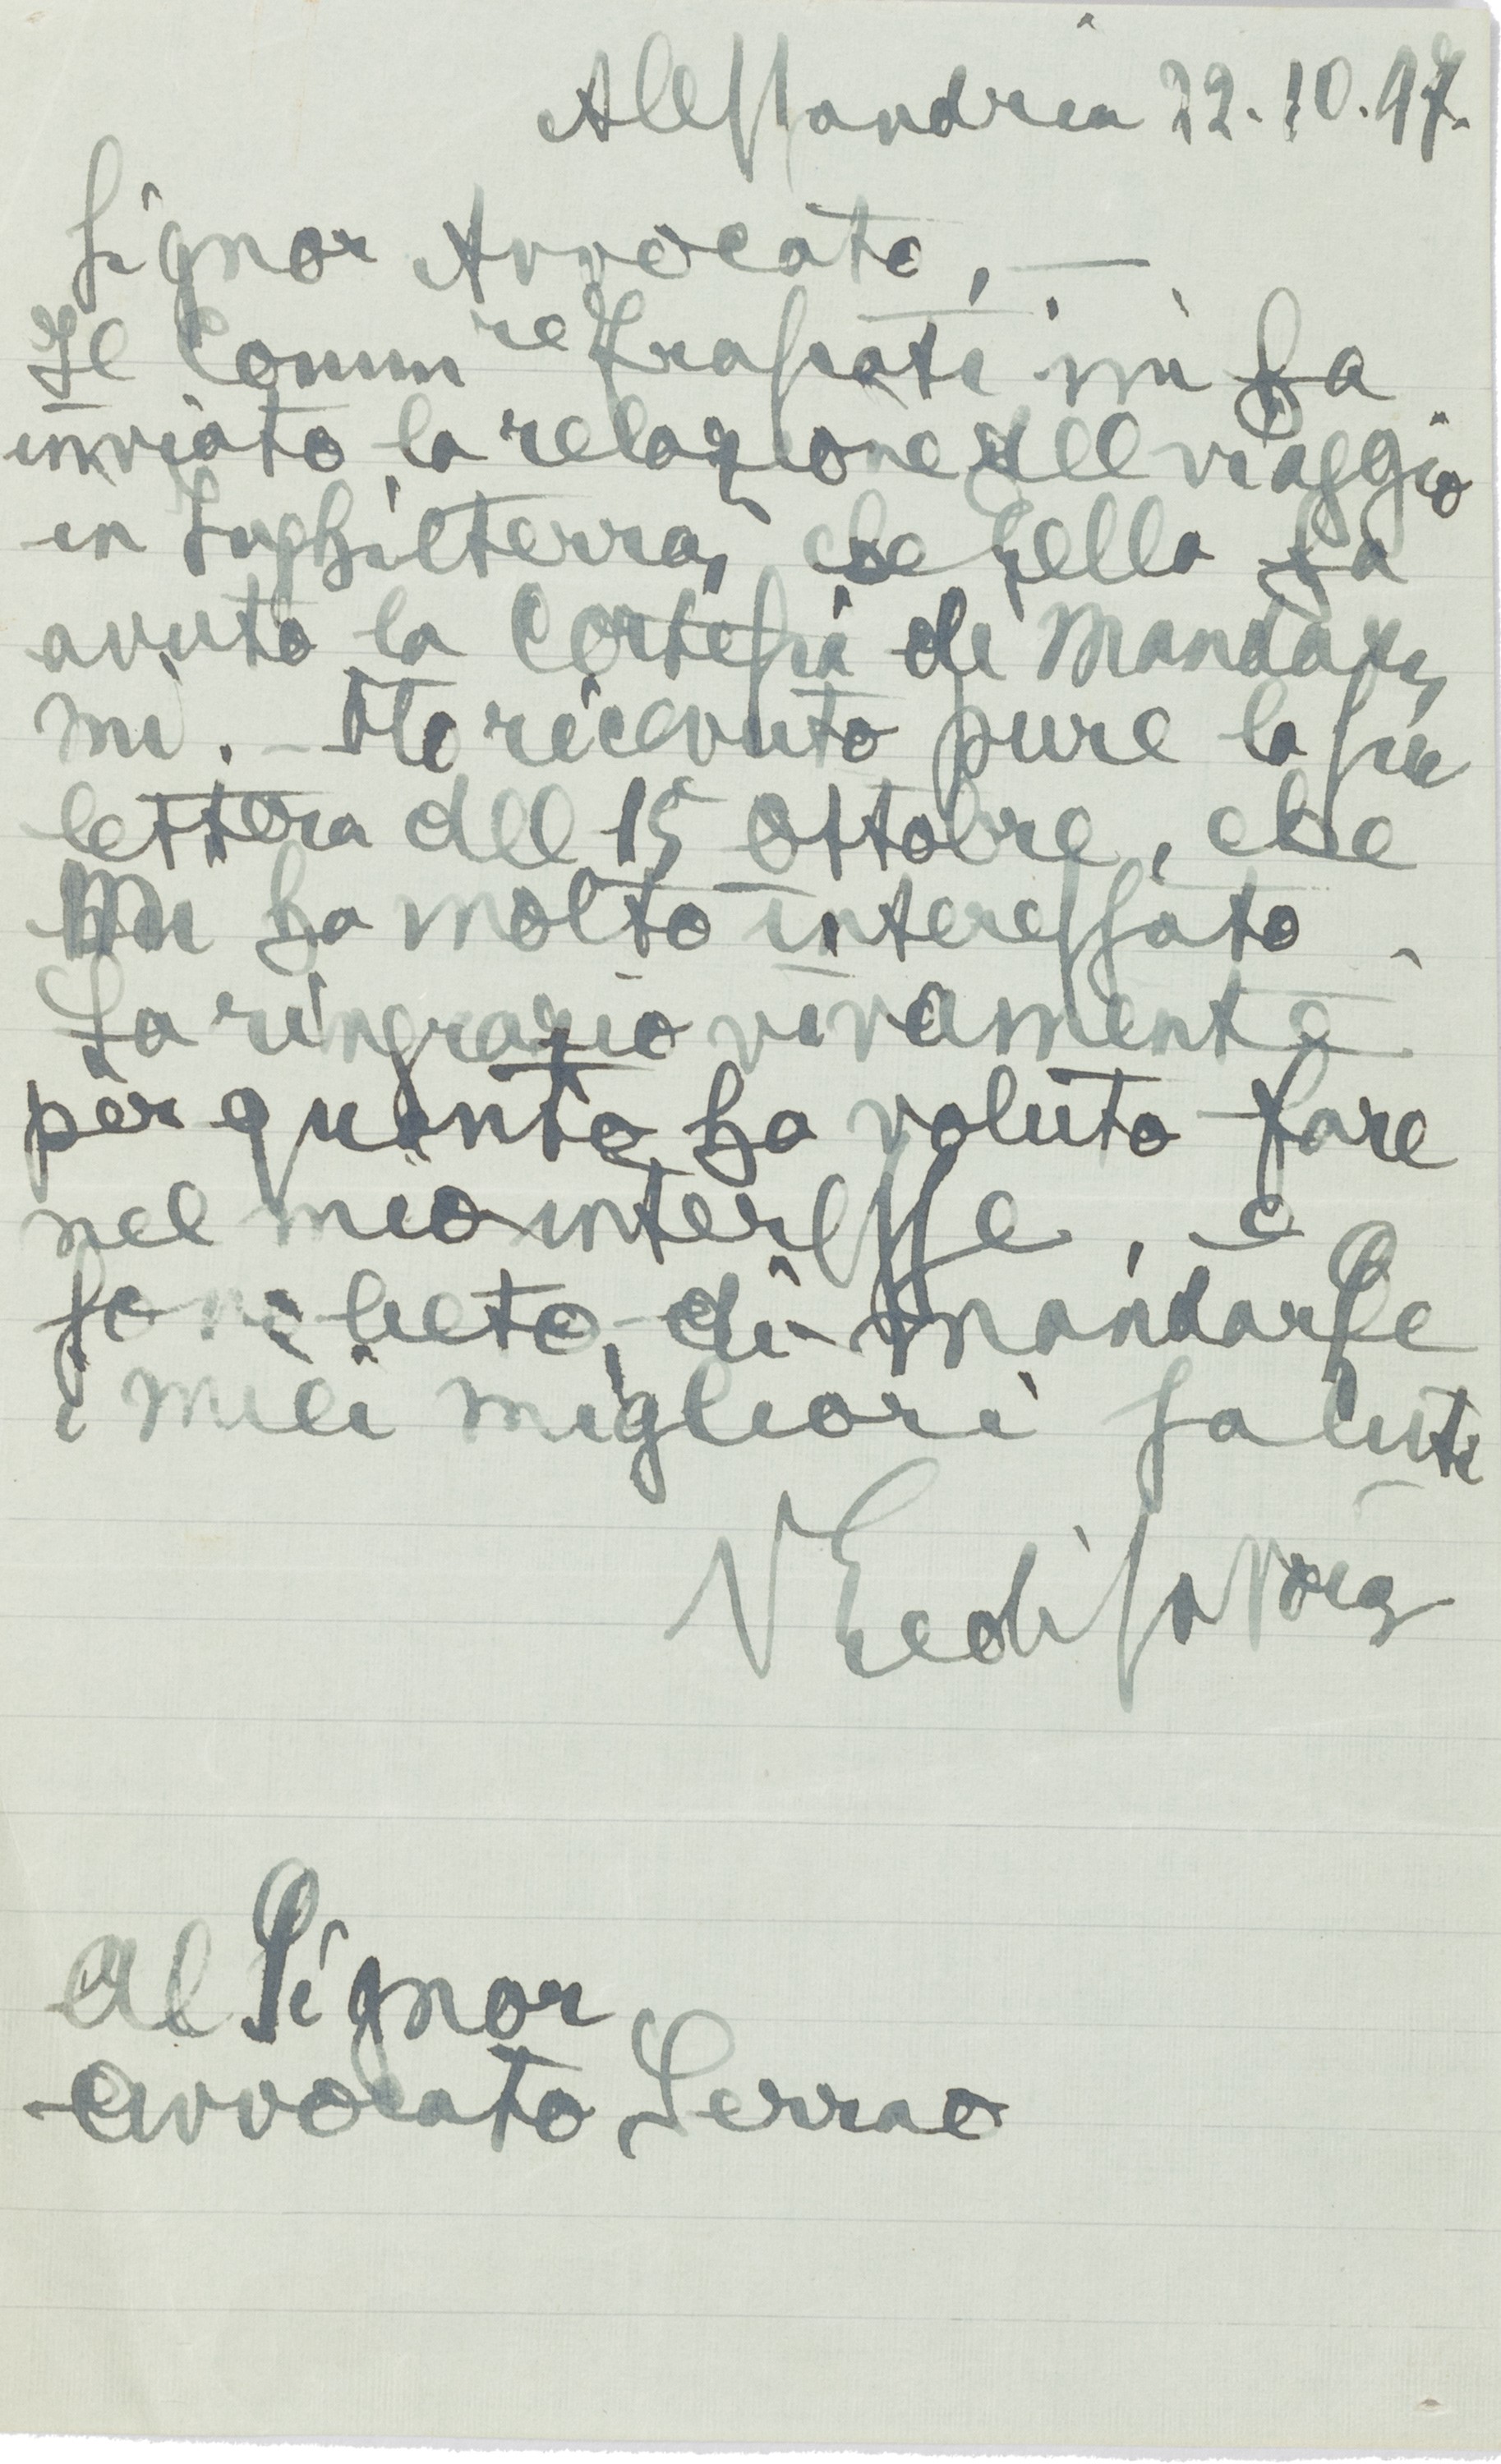 Alessandria 22.10.47.
Signor Avvocato, —
Il Comm re Trafati mi ha
inviato la relazione del viaggio
in Inghilterra, che Ella ha
avuto la cortesia di mandar,
mi. - Ho ricevuto pure la sua
lettera del 15 ottobre, che
mi ha molto interessato.
La ringrazio vivamente
per quanto ha voluto fare
nel mio interesse, e
sono lieto, di mandarle
i miei migliori saluti
VE di Savoia
Al Signor
avvocato Serrao